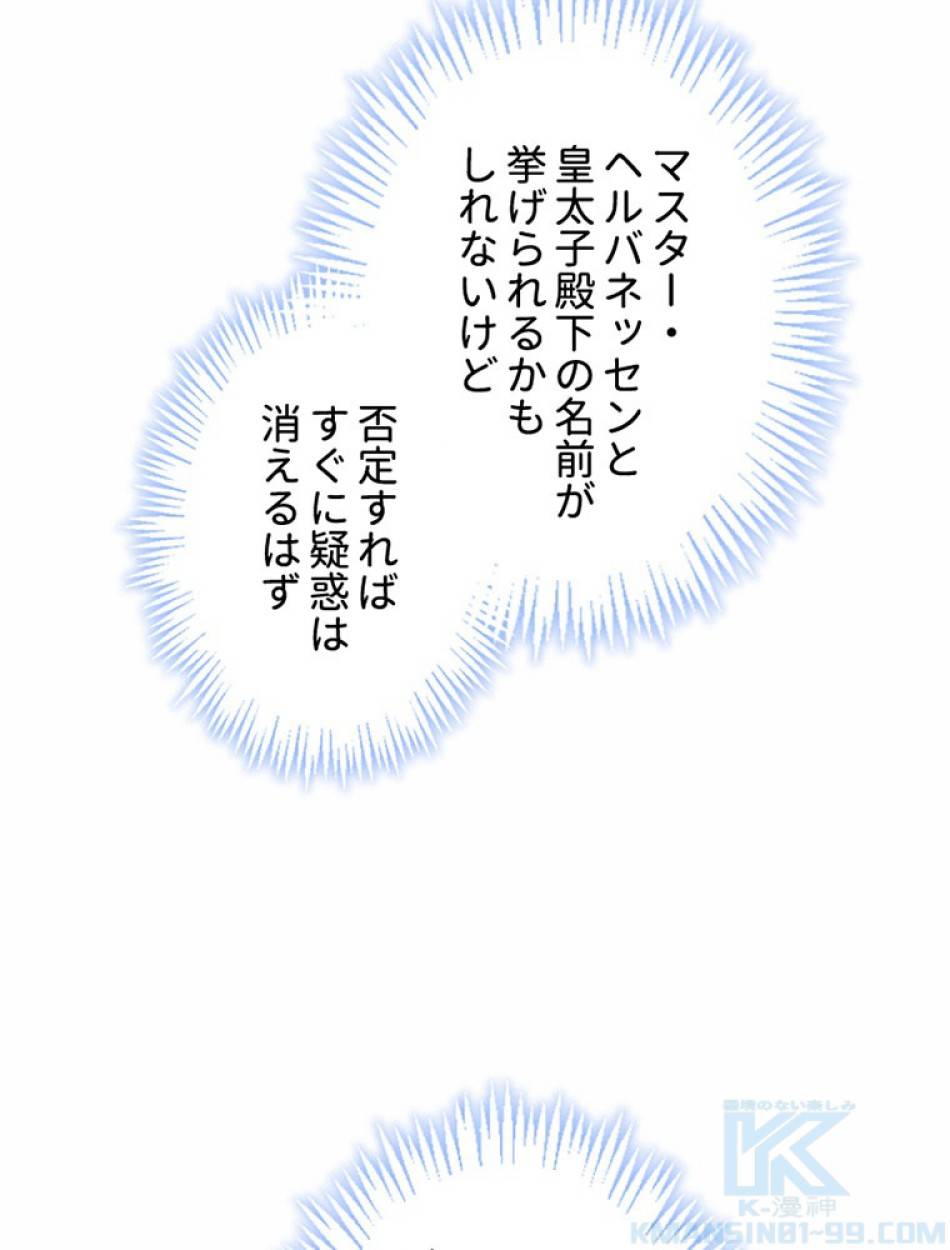 マスター・
ヘルバネッセンと
皇太子殿下の名前が
挙げられるかも
しれないけど
否定すれば
すぐに疑惑は
消えるはず
K-漫神
KMANSIN01-99.COM